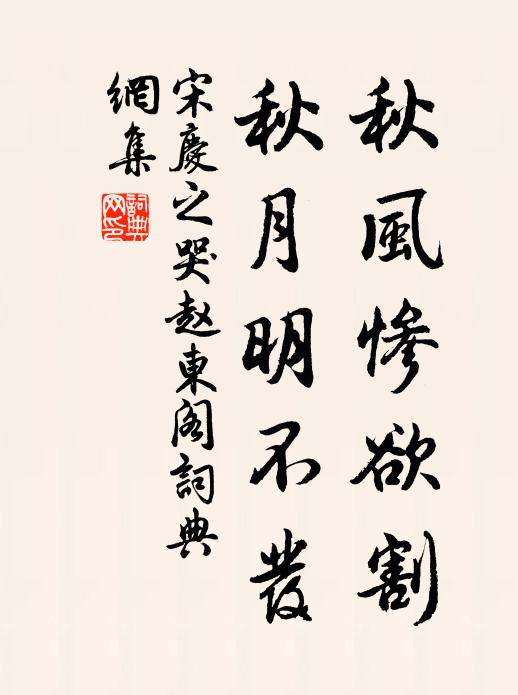 秋風慘欲割
秋月明不發
宋慶之哭赵東阁詞典
網集
詞典
网印